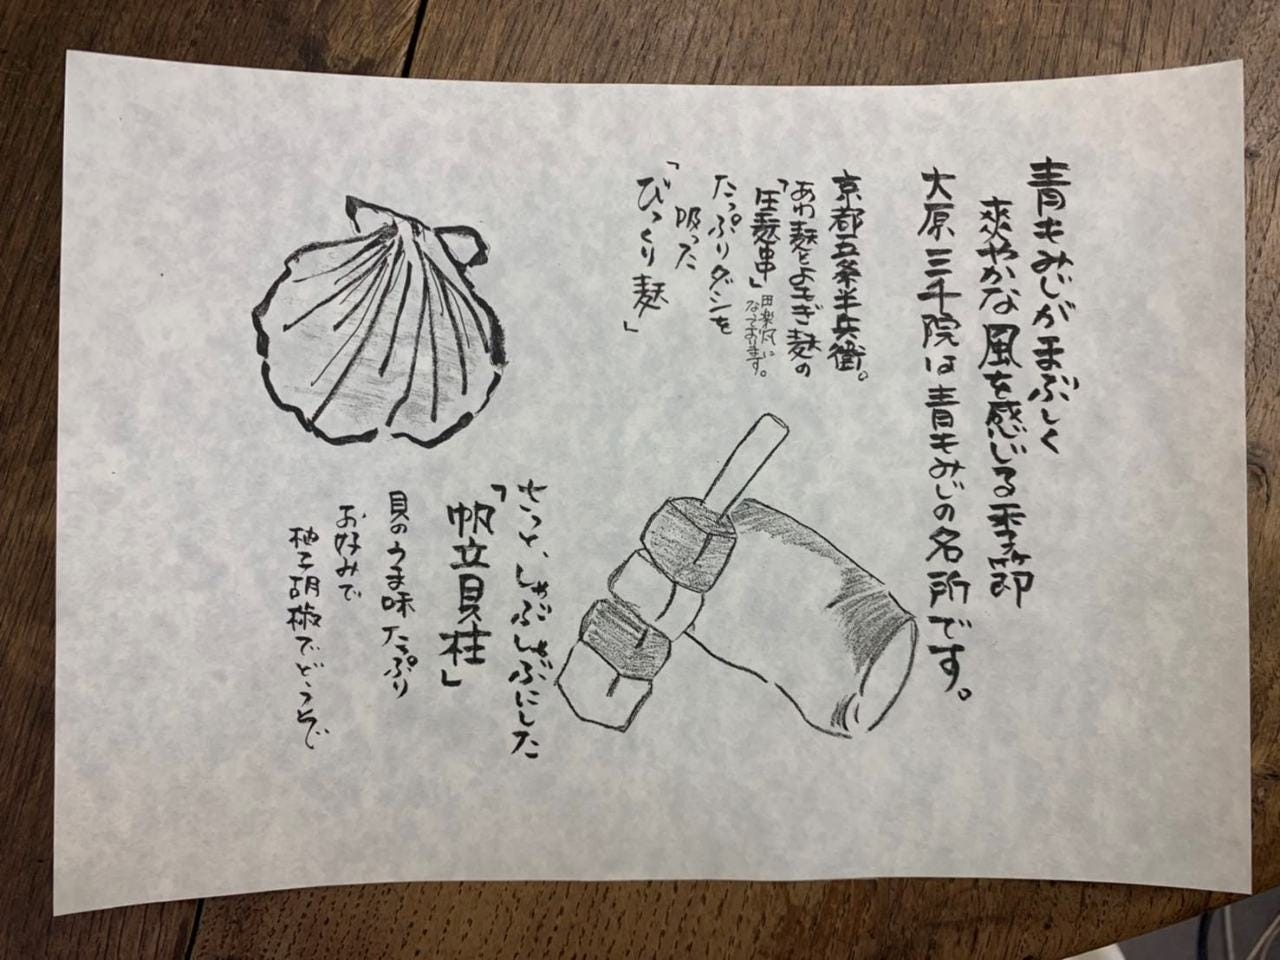 青もみじがまぶしく
爽やかな風を感じる季節
大原三千院は青もみじの名所です。
京都五条半兵衛。
あわ麸とよもぎ麸の
「生麸串」田楽風に
なっております。
たっぷりダシを
吸った
「びっくり麸」
さっと、しゃぶしゃぶにした
「帆立貝柱」
貝のうま味たっぷり
お好みで
柚子胡椒でどうぞ